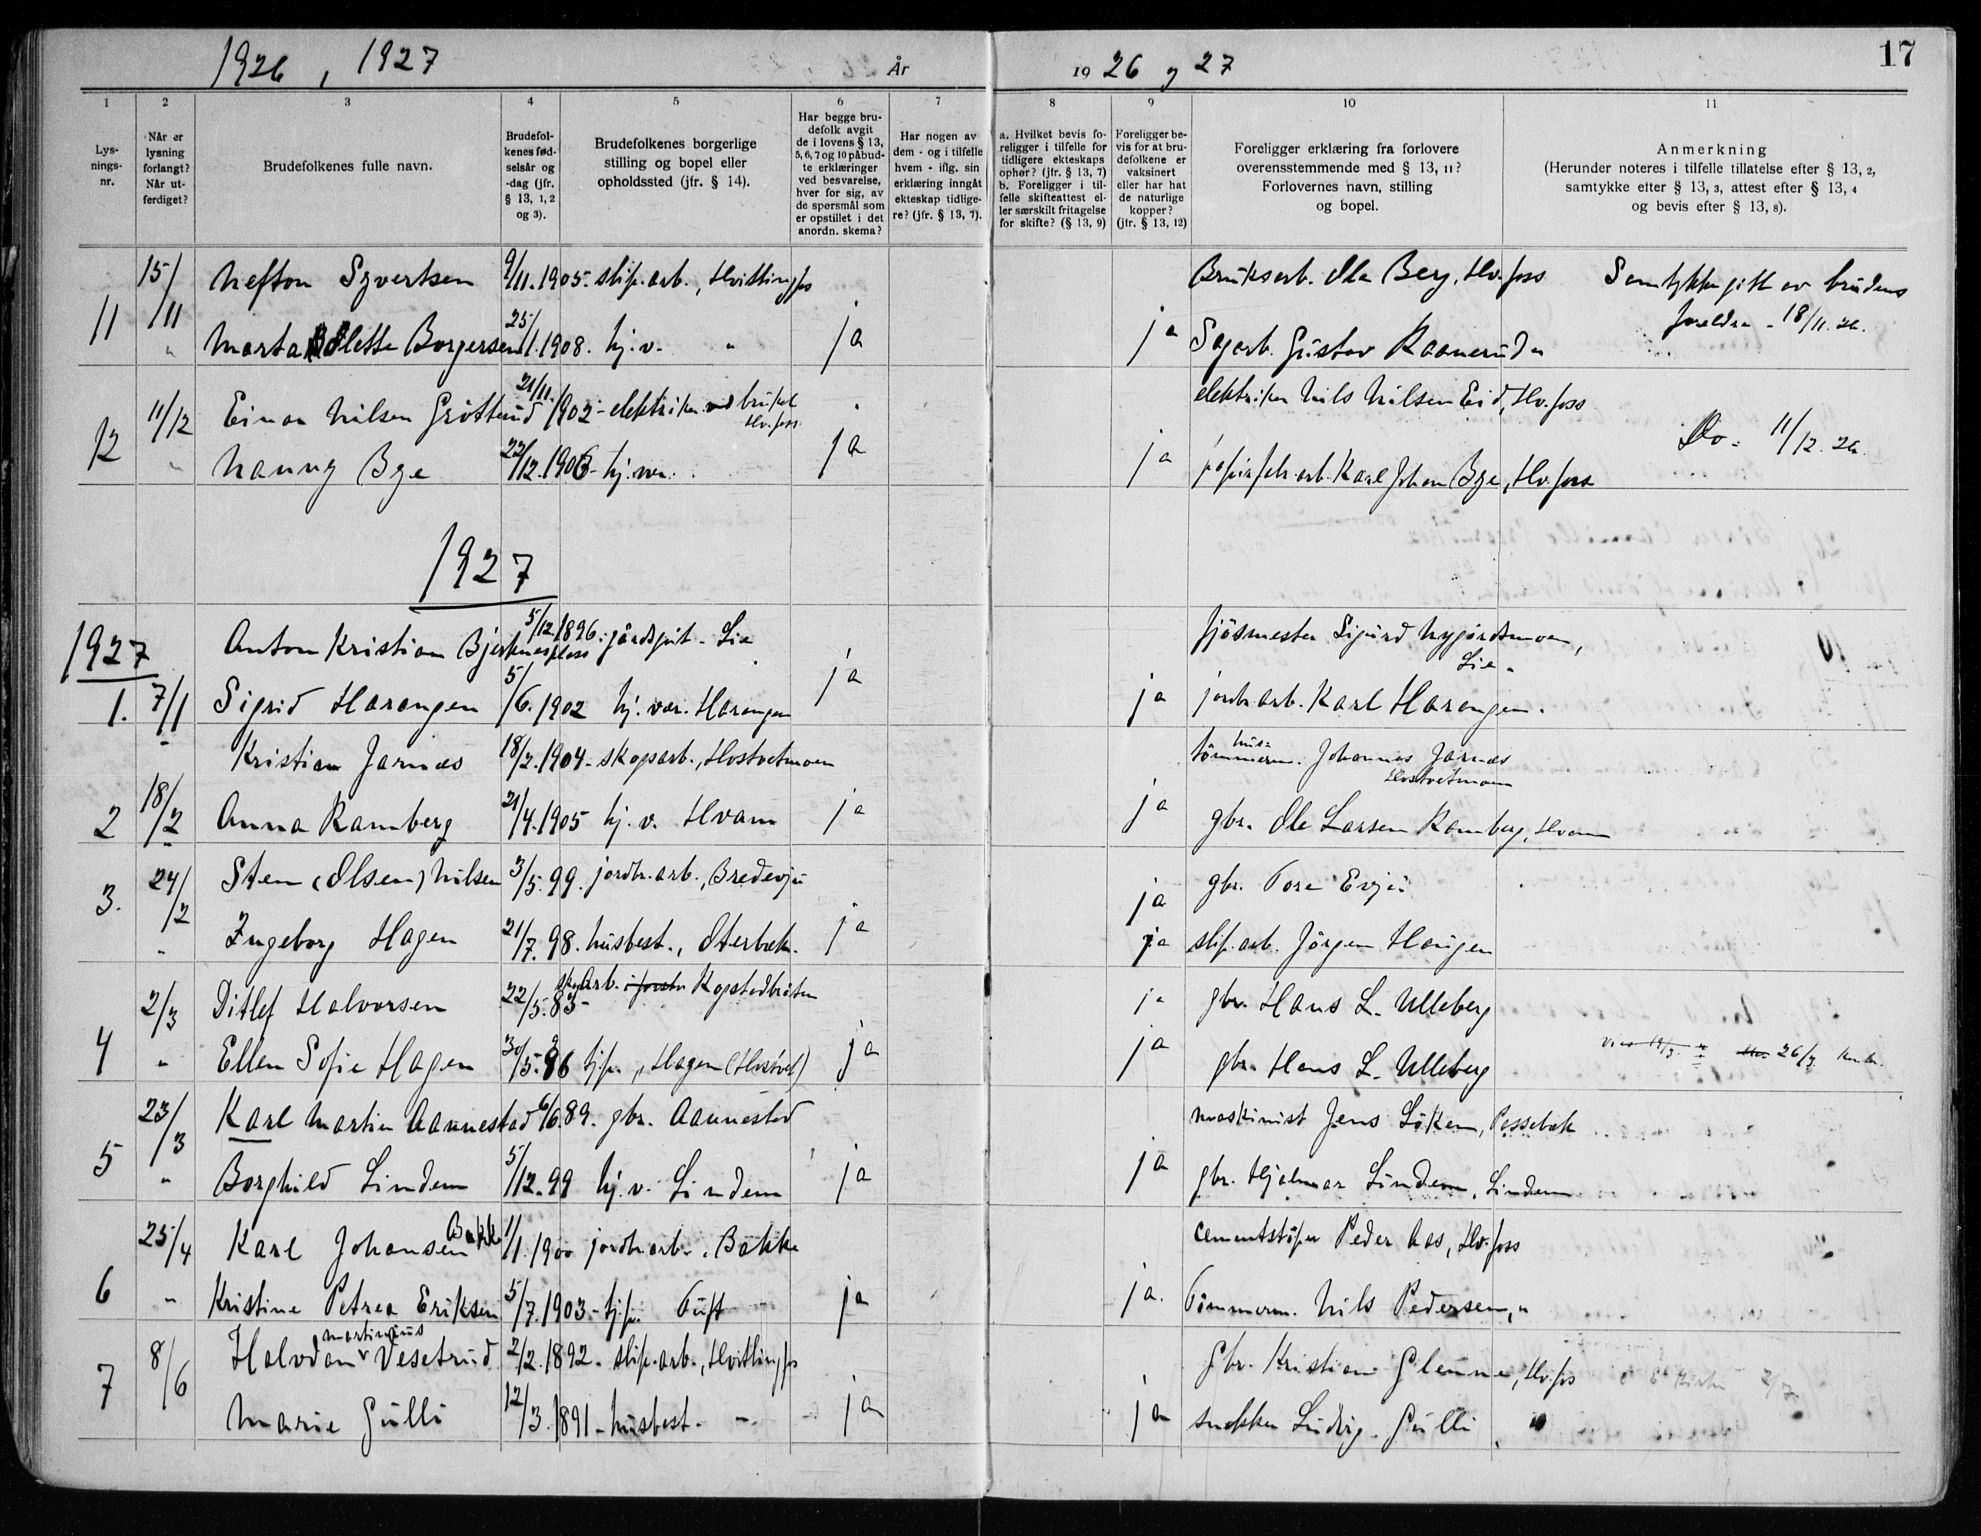 1926, 1927 År 1926 og 27 17
1 2 3 4 5 6 7 8 9 10 11
Lysnings-nr.
Når er lysning forlangt? Når utferdiget?
Brudefolkenes fulle navn.
Brudefolkenes fødselsår og -dag (jfr. § 13, 1, 2 og 3).
Brudefolkenes borgerlige stilling og bopel eller opholdssted (jfr. § 14).
Har begge brudefolk avgit de i lovens § 13, 5, 6, 7 og 10 påbudte erklæringer ved besvarelse, hver for sig, av de spørsmål som er opstillet i det anordn. skema?
Har nogen av dem - og i tilfelle hvem - iflg. sin erklæring inngått ekteskap tidligere? (jfr. § 13, 7).
a. Hvilket bevis foreligger i tilfelle for tidligere ekteskaps ophør? (jfr. § 13, 7) b. Foreligger i tilfelle skifteattest eller særskilt fritagelse for skifte? (§ 13, 9)
Foreligger bevis for at brudefolkene er vaksinert eller har hat de naturlige kopper? (jfr. § 13, 12)
Foreligger erklæring fra forlovere overensstemmende med § 13, 11? Forlovernes navn, stilling og bopel.
Anmerkning (Herunder noteres i tilfelle tillatelse efter § 13, 2, samtykke efter § 13, 3, attest efter § 13, 4 og bevis efter § 13, 8).
15/11 Nefton Syvertsen 9/11.1905 - slip.arb., Hvittingfos Bruksarb. Ole Berg, Hv.foss Samtykke gitt av brudens
11 " Marta Olette Borgersen 25/1.1908. hj.v. " ja ja Sagarb. Gustav Raanerud " foreldre - 18/11.26.
11/12 Einar Nilsen Grøtterud 21/11.1902 - elektriker ved bruket Hv.foss elektriker Nils Nilsen Eid, Hv.foss
12 " Nanny Bye 22/12.1906 - hj.vær. ja ja papirfabr.arb. Karl Johan Bye, Hv.foss Do - 11/12.26.
1927
1927 Anton Kristian Bjerknesplass 5/12.1896. gårdsgut - Lie fjøsmester Sigurd Nygårdsmoen, Lie -
1. 7/1 Sigrid Harangen 5/6.1902 hj.vær. Harangen ja ja jordbr.arb. Karl Harangen.
" Kristian Jarnæs 18/2.1904 - skogsarb., Hostvetmoen hustømmerm. Johannes Jarnæs Hostvetmoen
2 18/2 Anna Ramberg 21/4.1905 hj.v. Hvam ja ja gbr. Ole Larsen Ramberg, Hvam
3. 24/2 Sten (Olsen) Nilsen 3/5.99. jordbr.arb., Bredevju ja gbr. Tore Evju
" Ingeborg Hagen 21/7.98. husbest., Oterbæk. ja ja slip.arb. Jørgen Haugen
2/3 Ditlef Halvorsen 22/5.83 - skogarb. Kopstadbråten ja gbr. Hans L. Ulleberg
4 " Ellen Sofie Hagen 30/5.86 hj.p., Hagen (Hostvet) ja ja gbr. Hans L. Ulleberg 26/3
23/3 Karl Martin Aannestad 6/6.89. gbr. Aannestad maskinist Jens Løken, Passebæk
5 " Borghild Lindem 5/12.99 hj.v. Lindem ja ja gbr. Hjalmar Lindem, Lindem
25/4 Karl Johansen Bakke 1/1.1900 jordbr.arb., Bakke cementstøper Peder Aas, Hv.foss
6 " Kristine Petrea Eriksen 5/7.1903 - hj.p. Tuft ja ja. Tømmerm. Nils Pedersen, "
8/6 Halvdan Martinius Vesetrud 2/2.1892 - slip.arb., Hvittingfos gbr. Kristian Glenne, Hv.fos 2/7
7 Marie Gulli 12/3.1891 - husbest. - " - ja ja snekker Ludvig Gulli, "